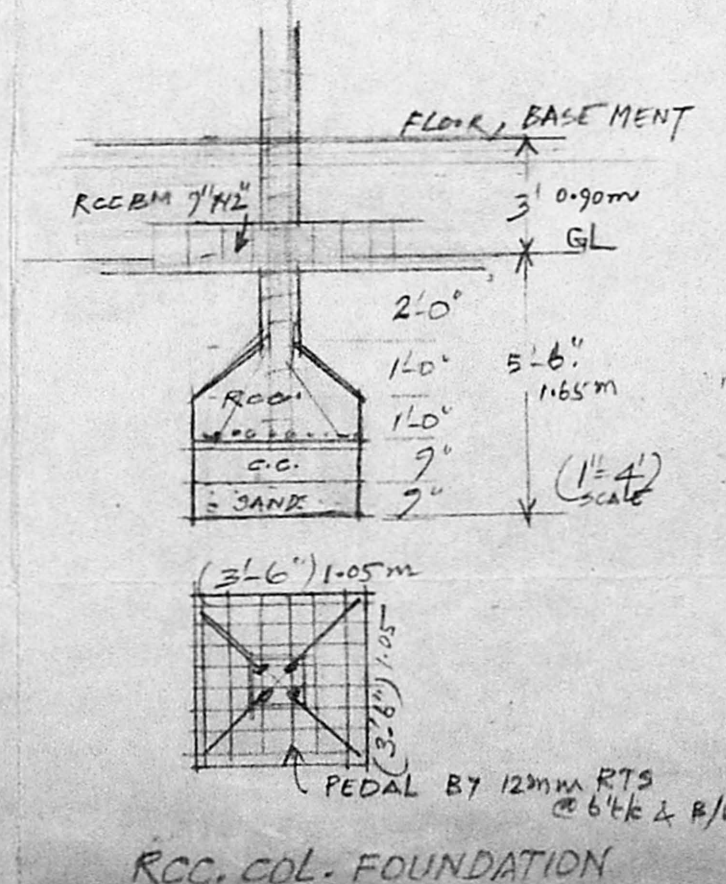 FLOOR, BASEMENT
RCC BM 9"x12"
3' 0.90m
GL
2'-0"
1'-0"
5'-6"
1.65m
R.C.C.
1'-0"
C.C.
9"
(1"=4')
SCALE
SAND
9"
(3'-6") 1.05m
(3'-6") 1.05
PEDAL BY 12mm RTS
@ 6" c/c & B/
RCC. COL. FOUNDATION